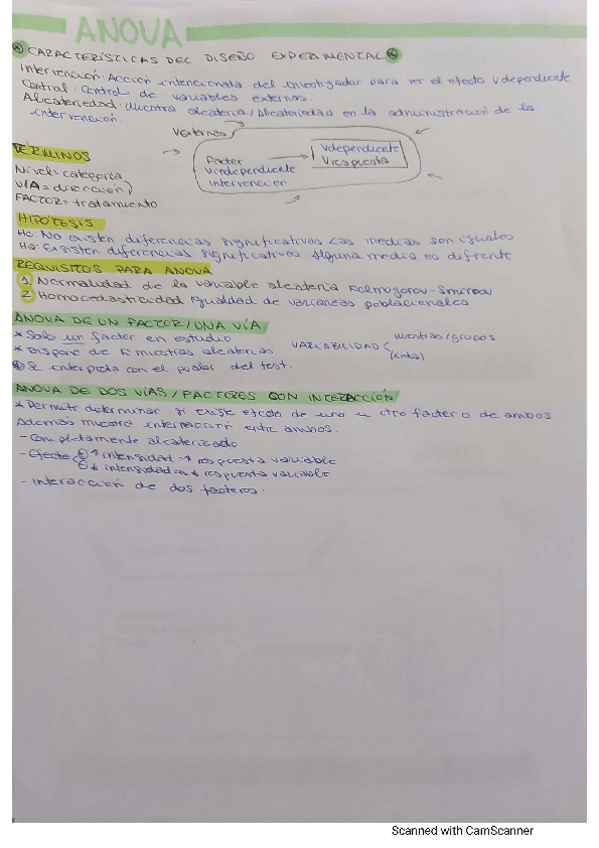 ANOVA
CARACTERÍSTICAS DEL DISEÑO EXPERIMENTAL
Intervención: Acción intencionada del investigador para ver el efecto Vdependiente
Control: Control de variables externas.
Aleatoriedad: Muestra aleatoria/Aleatoriedad en la administración de la
intervención.
Vexternas
TÉRMINOS
Nivel = categoría
VÍA = dirección
FACTOR = tratamiento
Factor
Vindependiente
Intervención
Vdependiente
Vrespuesta
HIPÓTESIS
Ho: No existen diferencias significativas Las medias son iguales
Ha: Existen diferencias significativas Alguna media es difrente
REQUISITOS PARA ANOVA
1 Normalidad de la variable aleatoria Kolmogorov-Smirnov
2 Homocedasticidad Igualdad de varianzas poblacionales
ANOVA DE UN FACTOR/UNA VÍA
* Solo un factor en estudio
* Dispone de K muestras aleatorias
VARIABILIDAD
muestras/grupos
Se interpreta con el pvalor del test.
ANOVA DE DOS VÍAS/FACTORES CON INTERACCIÓN
* Permite determinar si existe efecto de uno u otro factor o de ambos
Además mucara interacción entre ambos.
- Completamente aleatorizado
- Efecto ↑ intensidad → ↑ respuesta variable
↓ intensidad → ↓ respuesta variable
- Interacción de dos factores.
Scanned with CamScanner